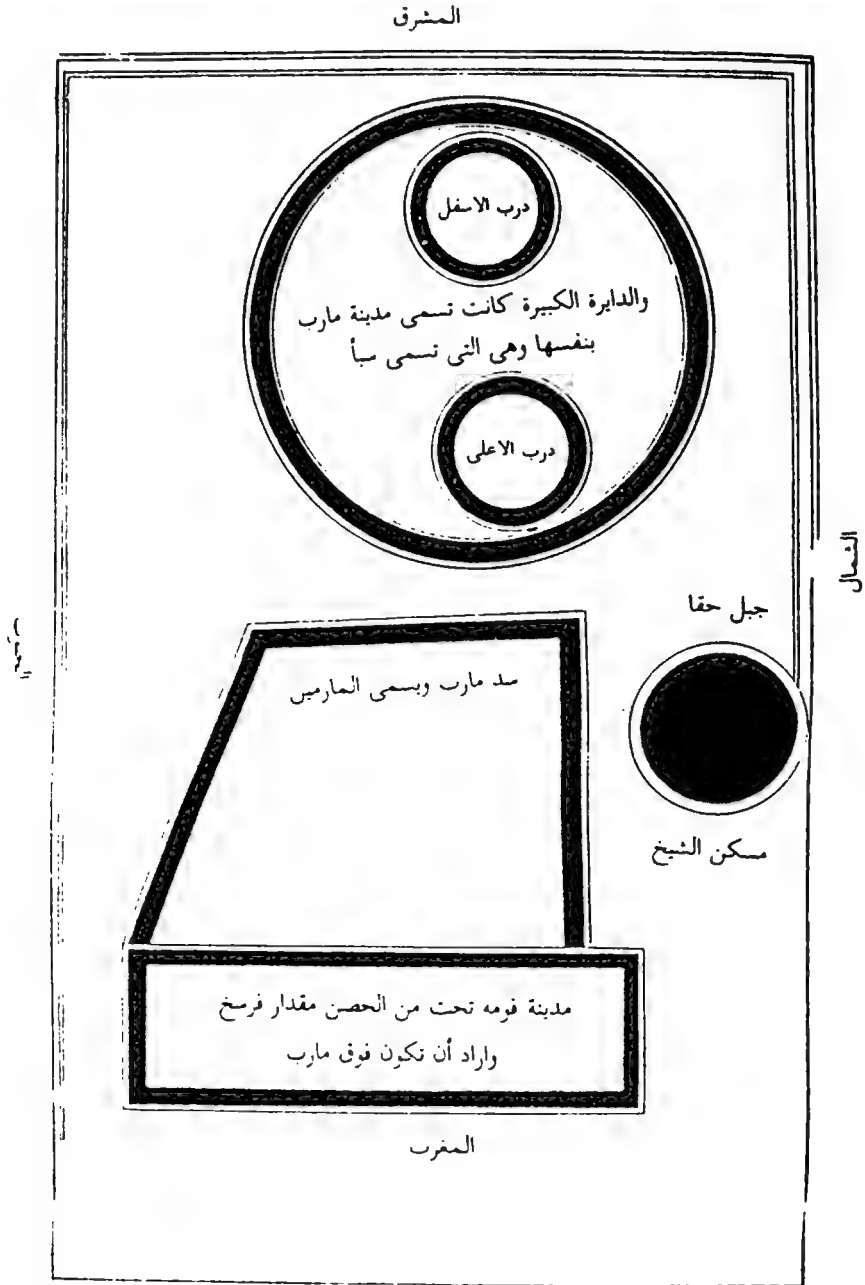 المشرق
درب الاسفل
والدايرة الكبيرة كانت تسمى مدينة مارب
بنفسها وهى التى تسمى سبأ
درب الاعلى
الشمال
جبل حقا
سد مارب ويسمى المارمين
مسكن الشيخ
مدينة فومه تحت من الحصن مقدار فرسخ
واراد أن تكون فوق مارب
المغرب